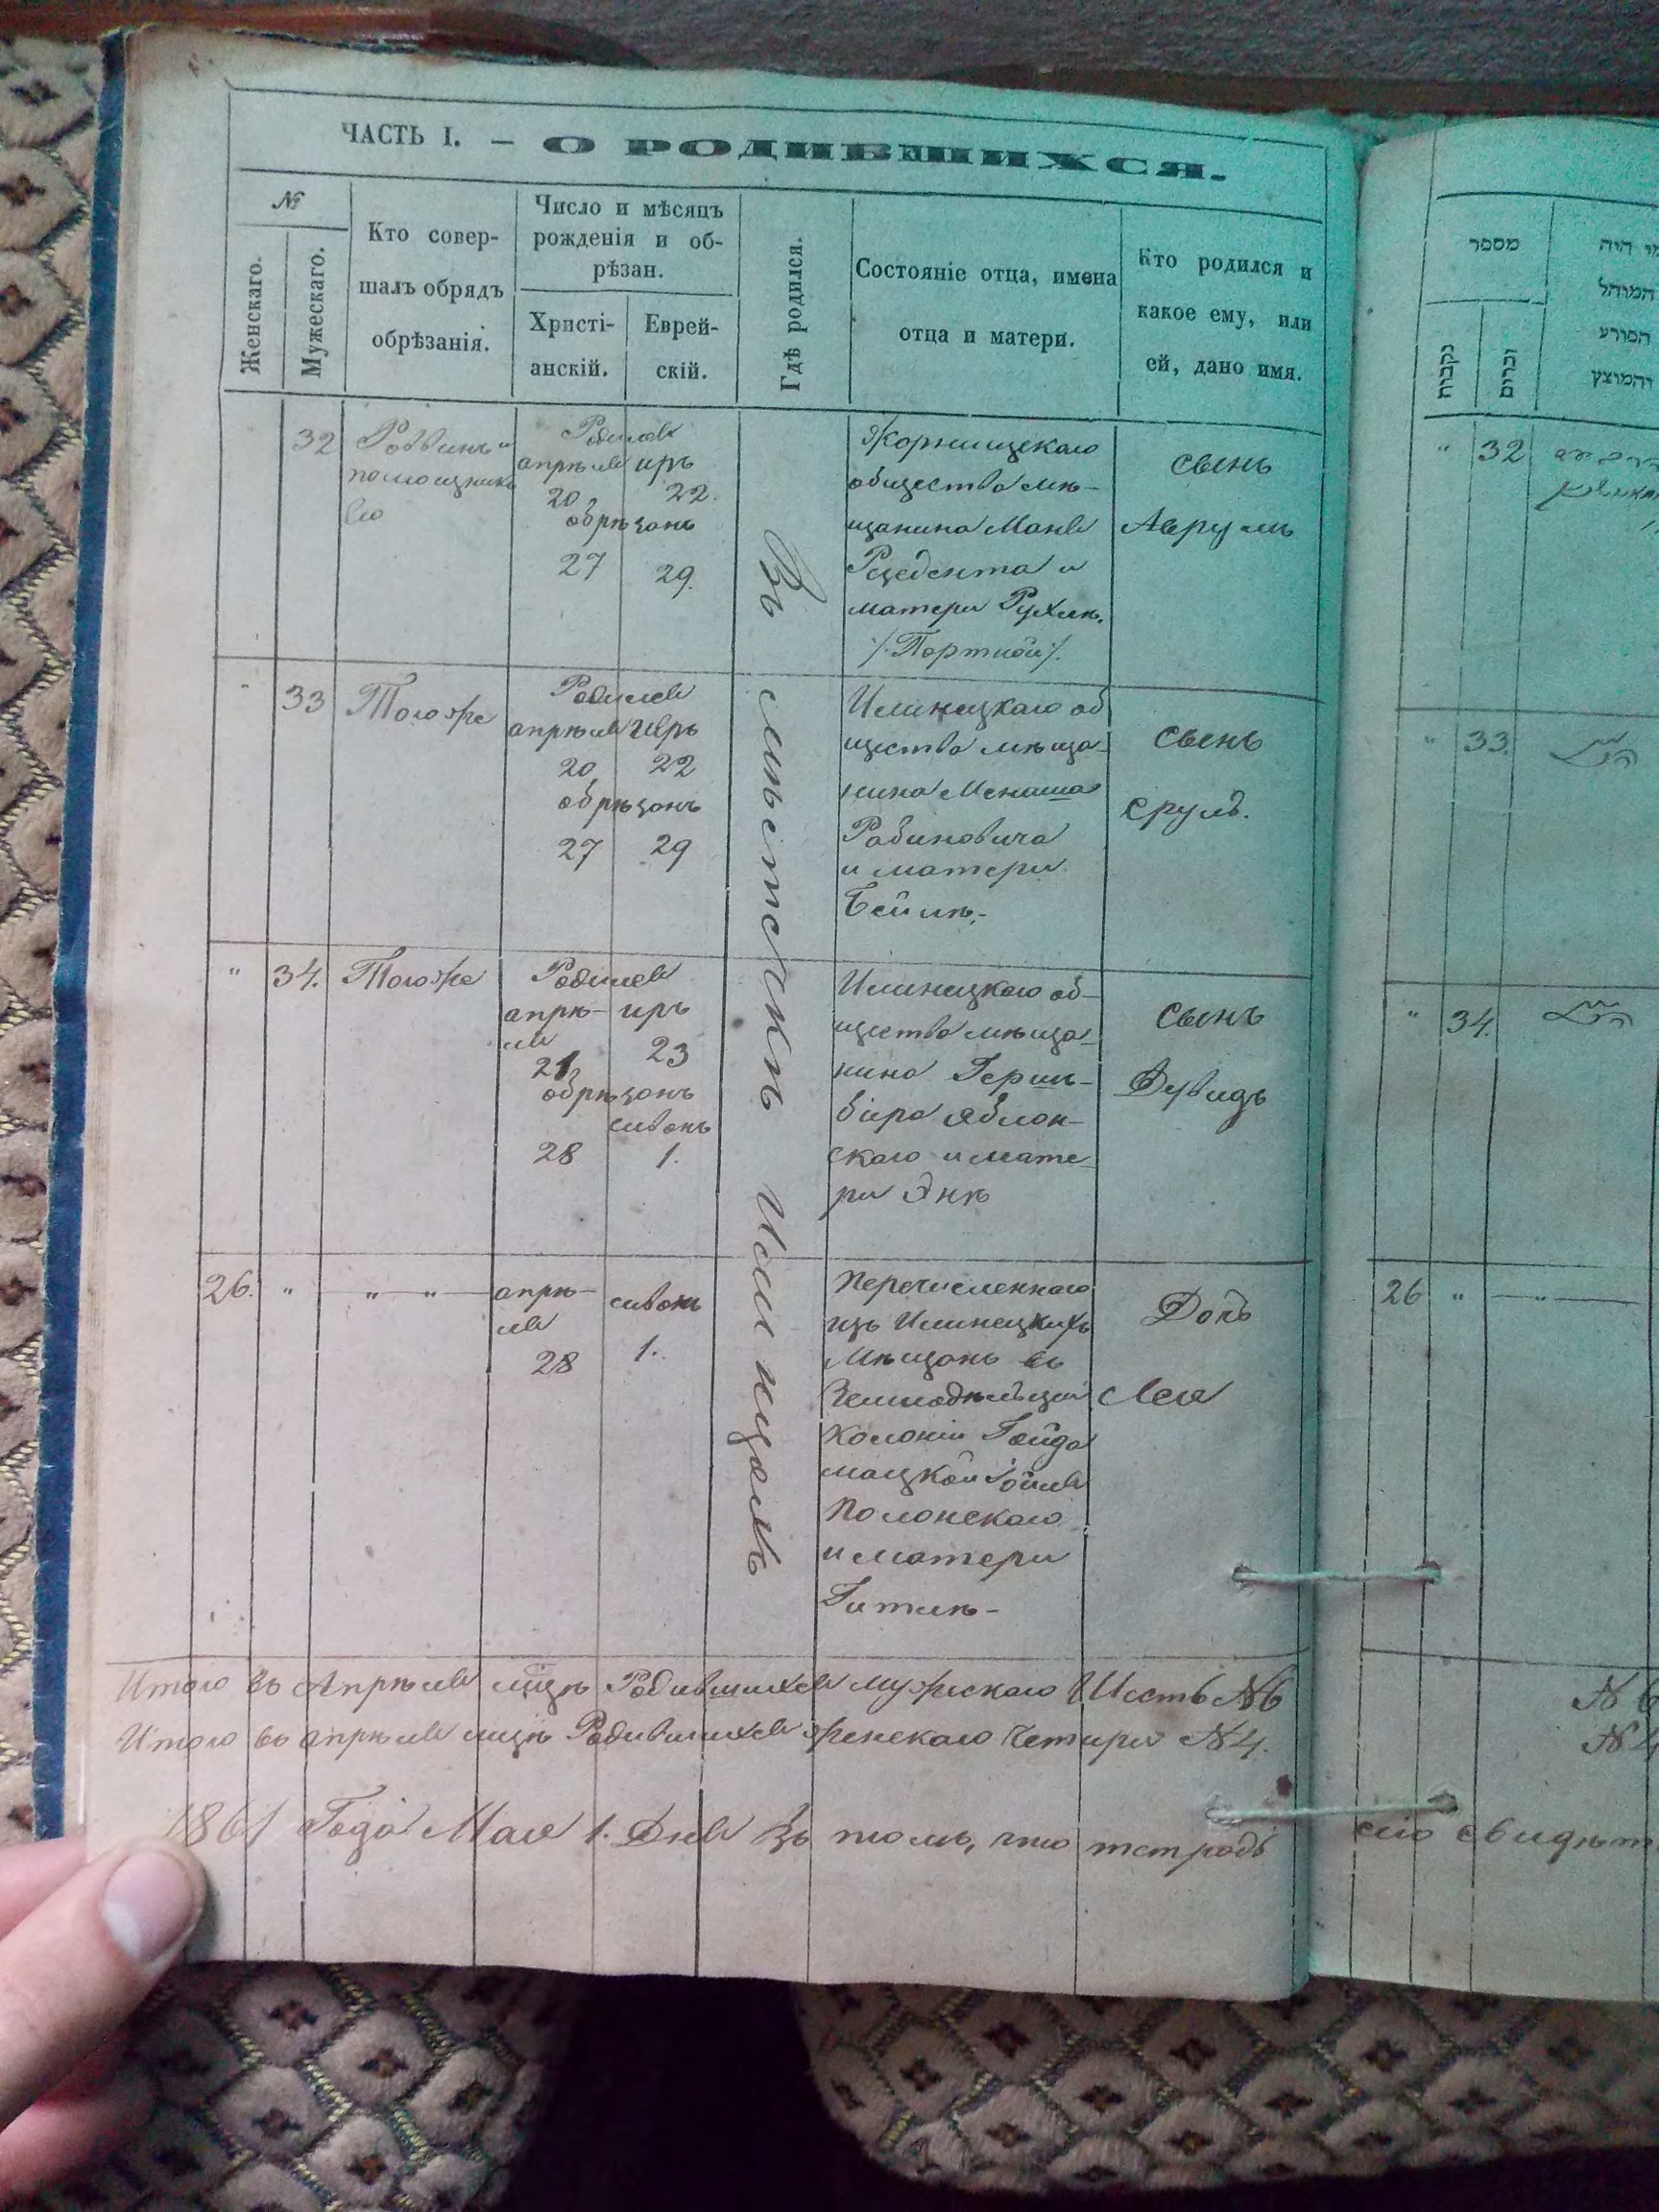 ЧАСТЬ I. — О РОДИВШИХСЯ.
№
Женскаго.
Мужескаго.
Кто совер-
шалъ обрядъ
обрѣзанія.
Число и мѣсяцъ
рожденія и об-
рѣзан.
Христі-
анскій.
Еврей-
скій.
Гдѣ родился.
Состояніе отца, имена
отца и матери.
Кто родился и
какое ему, или
ей, дано имя.
32
Раввинъ и
помощникъ
Его
Родился
апрѣля иръ
20 22.
обрѣзанъ
27 29.
Въ мѣстечкѣ Илинцахъ
Жорнищскаго
общества мѣ-
щанина
и
матери Рухлѣ.
/. Портной /.
сынъ
Аврумъ
" 33
Тогоже
Родился
апрѣля иръ
20 22
обрѣзанъ
27 29
Илинецкаго об
щества мѣща-
нина Менаша
Рабиновича
и матери
Бейлѣ.-
сынъ
Сруль.
" 34.
Тогоже
Родился
апрѣ- иръ
ля
21 23
обрѣзанъ
сиванъ
28 1.
Илинецкаго об-
щества мѣща-
нина Герш-
бера Яблон-
скаго и мате-
ри Энѣ
сынъ
Дувидъ
26. "
" "
апрѣ- сиванъ
ля
28 1.
Перечисленнаго
изъ Илинецкихъ
Мѣщанъ въ
Земледѣльцы
Колоніи Гайда
мацкой
Полонскаго
и матери
Гитлѣ-
Дочь
Лея
Итого въ Апрѣля мцѣ Родившихся мужескаго Шесть №6
Итого въ апрѣля мцѣ Родившихся женскаго Четыри №4.
1861 Года Мая 1. Дня Въ томъ, что тетрадь
מספר
נקבות
זכרים
מי היה
המוהל
הפורע
והמוצץ
" 32
" 33.
" 34.
26 "
№ 6
№ 4
сію